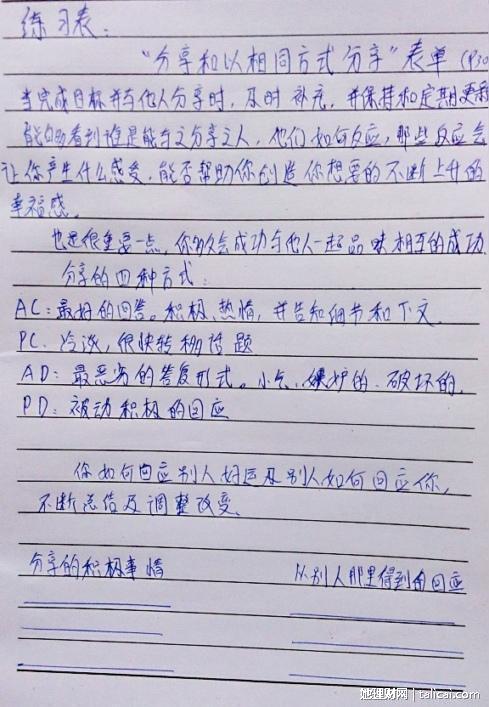 练习表：
“分享和以相同方式分享”表单（P30
当完成目标并与他人分享时，及时补充，并保持和定期更新
能够看到谁是能与之分享之人，他们如何反应，那些反应会
让你产生什么感受，能否帮助你创造你想要的不断上升的
幸福感。
也是很重要一点，你多久会成功与他人一起品味相互的成功
分享的四种方式：
AC：最好的回答。积极，热情，并告知细节和下文
PC：冷淡，很快转移话题
AD：最恶劣的答复形式。小气，嫉妒的，破坏的，
PD：被动积极的回应
你如何回应别人好运及别人如何回应你，
不断总结及调整改变。
分享的积极事情 从别人那里得到的回应
她理财网 | talicai.com